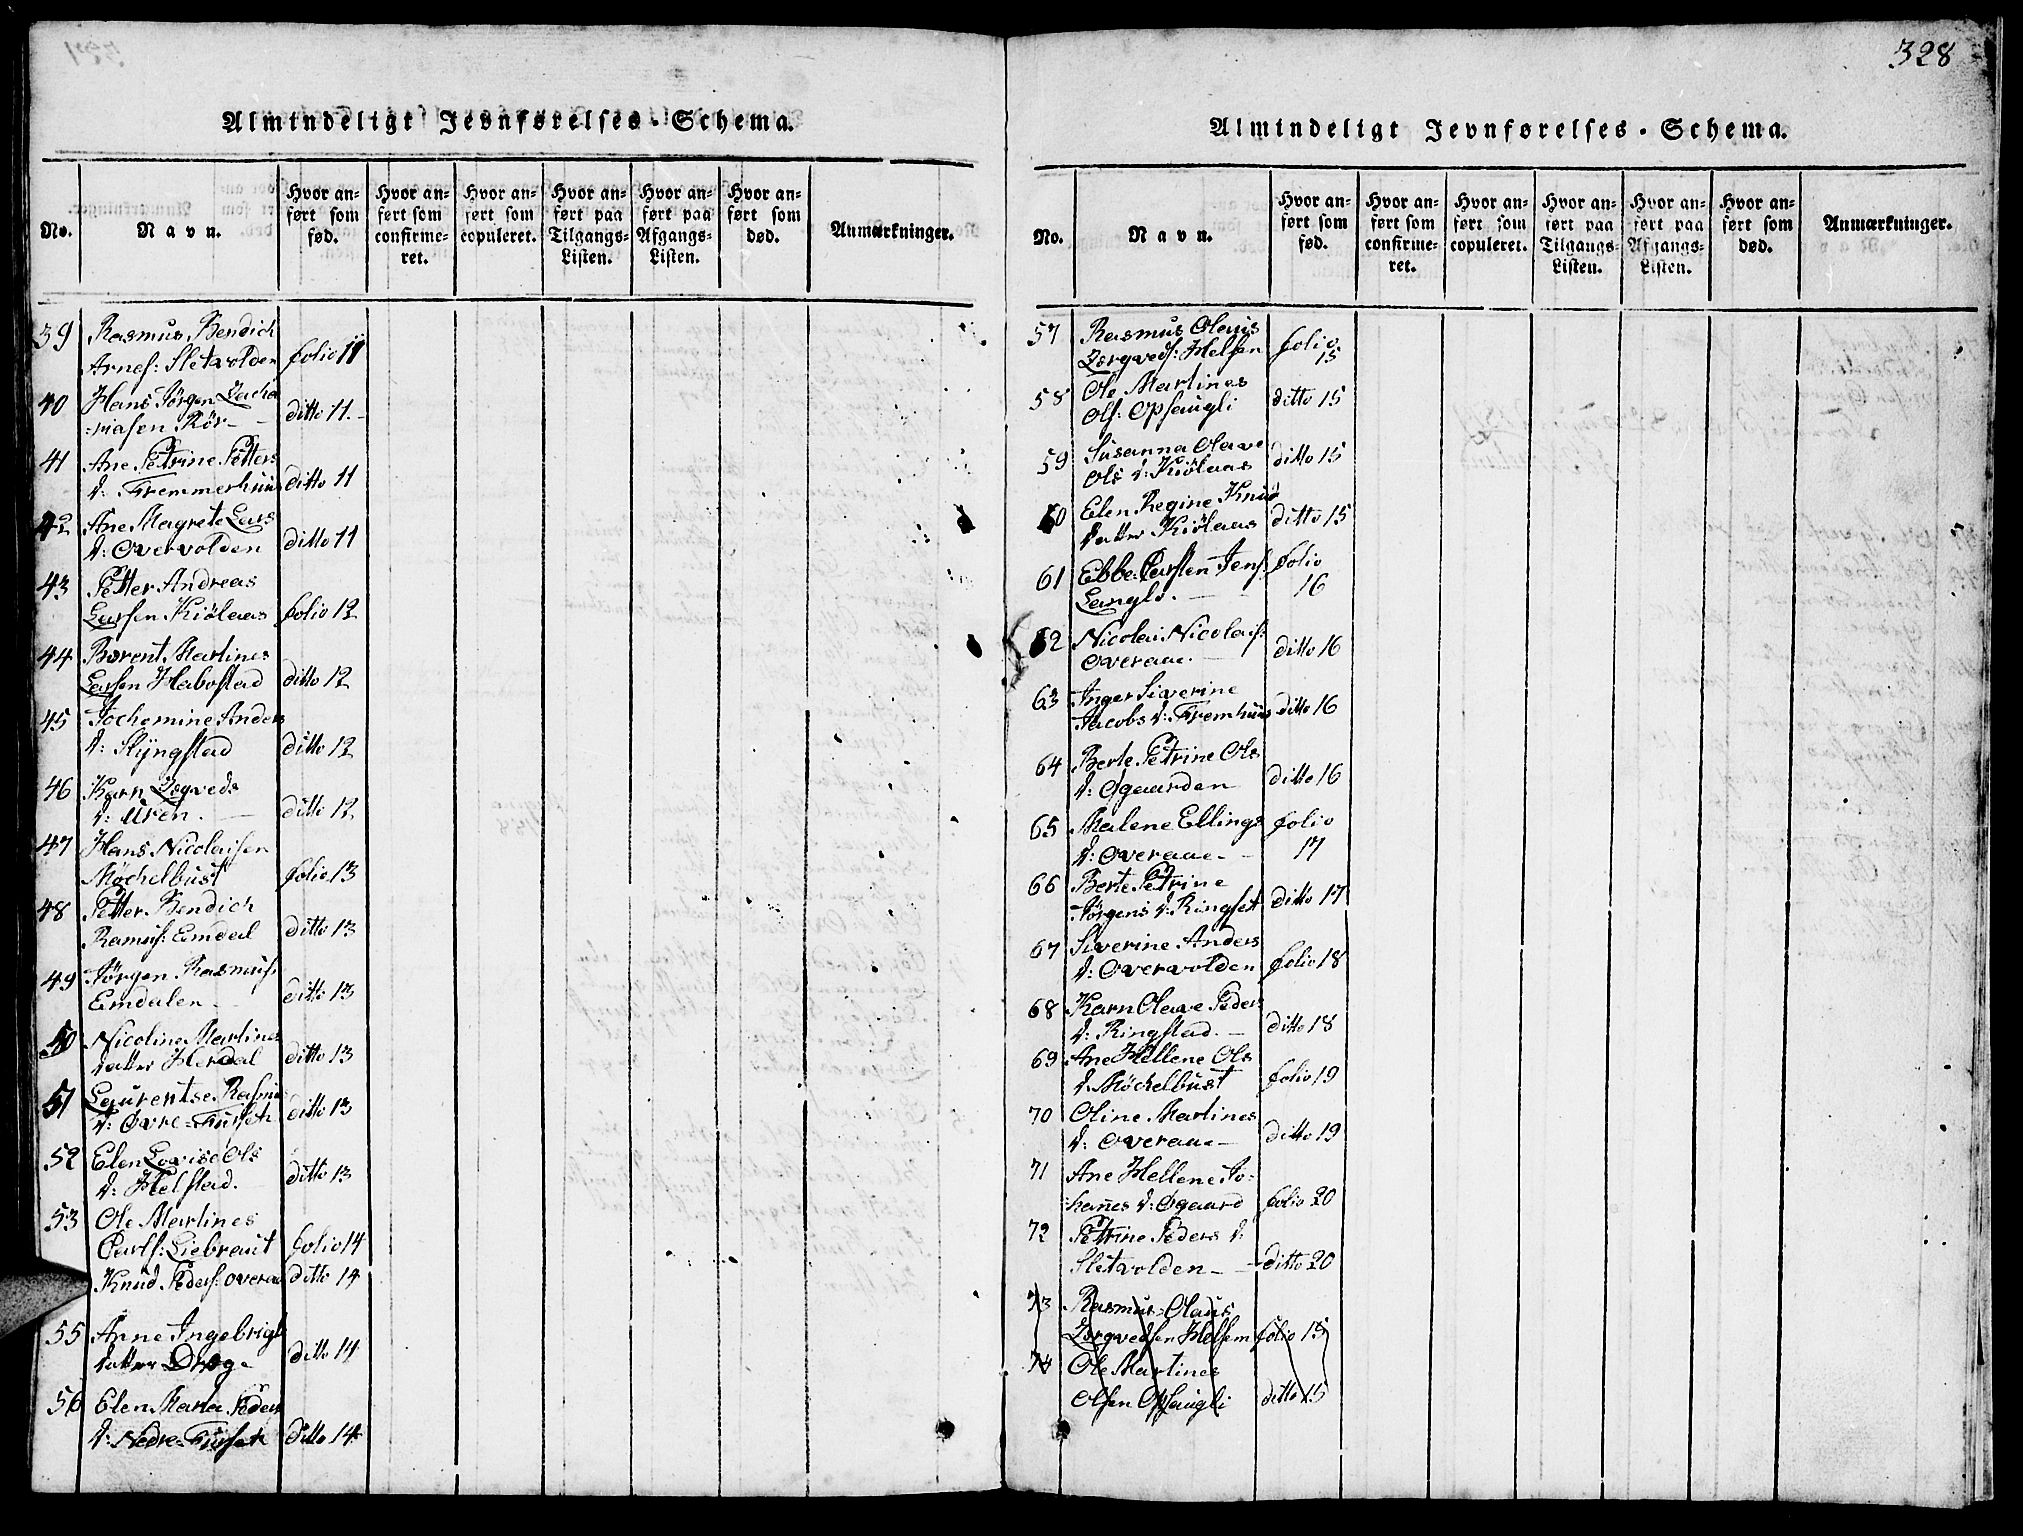 Almindeligt Jevnførelses-Schema.
No.
Navn.
Hvor anført som fød.
Hvor anført som confirmeret.
Hvor anført som copuleret.
Hvor anført paa Tilgangs-Listen.
Hvor anført paa Afgangs-Listen.
Hvor anført som død.
Anmærkninger.
39 Rasmus Bendich
Arnes: Sletvolden folio 11
40 Hans Jörgen Zacha
=riasen Rör - ditto 11.-
41 Ane Petrine Petters
d: Fremmerhuus ditto 11
42 Ane Magrete Lars
d: Overvolden ditto 11
43 Petter Andreas
Larsen Kiölaas folio 12
44 Berent Martines
Larsen Habostad ditto 12
45 Jochemine Anders
d: Slÿngstad ditto 12
46 Karn Zegveds
d: Uren. ditto 12
47 Hans Nicolaisen
Möchelbust folio 13
48 Petter Bendich
Ramus: Emdal ditto 13
49 Jörgen Rasmus:
Emdalen - ditto 13
50 Nicoline Martines
datter Herdal ditto 13
51 Laurentse Rasmus
d: Øvre=Furset ditto 13
52 Elen Lovise Ols
d: Helstad. ditto 13
53 Ole Martines
Carls: Liebraut folio 14
Knud Peders: overaa ditto 14
55 Anne Ingebrigt
datter Drøge ditto 14
56 Elen Maria Peders
d: Nedre=Furset ditto 14
328
Almindeligt Jevnførelses-Schema.
No.
Navn.
Hvor anført som fød.
Hvor anført som confirmeret.
Hvor anført som copuleret.
Hvor anført paa Tilgangs-Listen.
Hvor anført paa Afgangs-Listen.
Hvor anført som død.
Anmærkninger.
57 Rasmus Olauis
Zorgveds: Helsen folio 15
58 Ole Martines
Ols: Opsaugli ditto 15
59 Susanna Olave
Ols d: Kiölaas ditto 15
60 Elen Regine Knud
datter Kiölaas ditto 15
61 Ebbe Carsten Jens: folio
Langlo. - 16
62 Nicolai Nicolais:
overaae. - ditto 16
63 Inger Siverine
Jacobs d: Fremhuus ditto 16
64 Berte Petrine Ols
d: Øgaarden ditto 16
65 Malene Ellings folio
d: overaae - 17
66 Berte Petrine
Jörgens d: Ringset ditto 17
67 Siverine Anders
d: Overvolden folio 18
68 Karn Olave Peders
d: Ringstad. - ditto 18
69 Ane Hellene Ols
d. Möchelbust folio 19
70 Oline Martines
d: Overaae - ditto 19
71 Ane Hellene Jo=
hanes d: Øgaard folio 20
72 Petrine Peders d:
Sletvolden - ditto 20
73 Rasmus Olaus
Zorgvedsen Helsem folio 15
74 Ole Martines
Olsen Opsaugli ditto 15